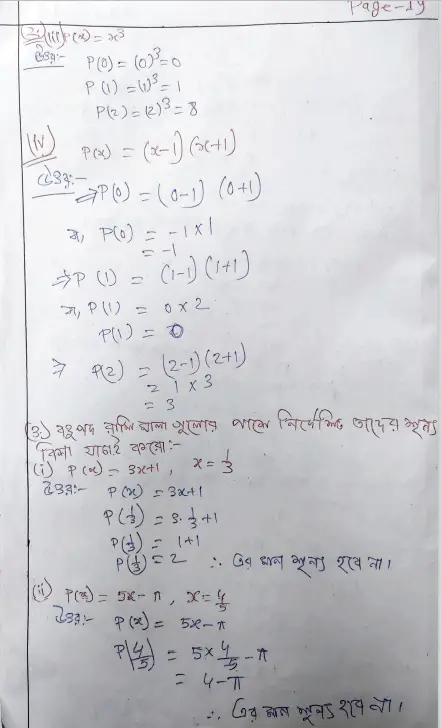 Page-19
2.(iii) P(x) = x³
উত্তর:- P(0) = (0)³ = 0
P(1) = (1)³ = 1
P(2) = (2)³ = 8
(iv) P(x) = (x-1)(x+1)
উত্তর:- ⇒ P(0) = (0-1) (0+1)
বা, P(0) = -1 × 1
= -1
⇒ P(1) = (1-1)(1+1)
বা, P(1) = 0 × 2
P(1) = 0
⇒ P(2) = (2-1)(2+1)
= 1 × 3
= 3
(3.) বহুপদ রাশি মালা গুলোর পাশে নির্দেশিত তাদের শূন্য
কিনা যাচাই করো:-
(i) P(x) = 3x+1, x = 1/3
উত্তর:- P(x) = 3x+1
P(1/3) = 3·1/3+1
P(1/3) = 1+1
P(1/3) = 2 ∴ এর মান শূন্য হবে না।
(ii) P(x) = 5x-π, x = 4/5
উত্তর:- P(x) = 5x-π
P(4/5) = 5×4/5-π
= 4-π
∴ এর মান শূন্য হবে না।